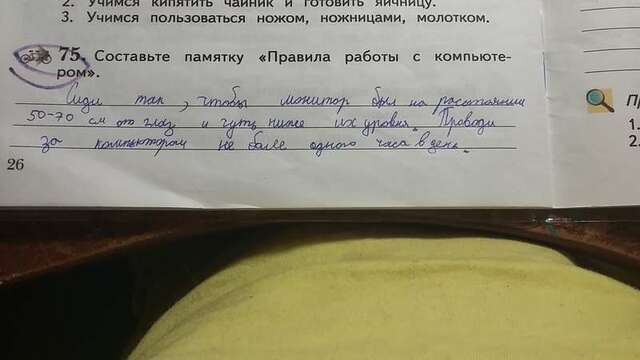 2. Учимся кипятить чайник и готовить яичницу.
3. Учимся пользоваться ножом, ножницами, молотком.
75. Составьте памятку «Правила работы с компьюте-
ром».
Сиди так, чтобы монитор был на расстоянии
50-70 см от глаз и чуть ниже их уровня. Проводи
за компьютором не более одного часа в день.
26
1.
2.